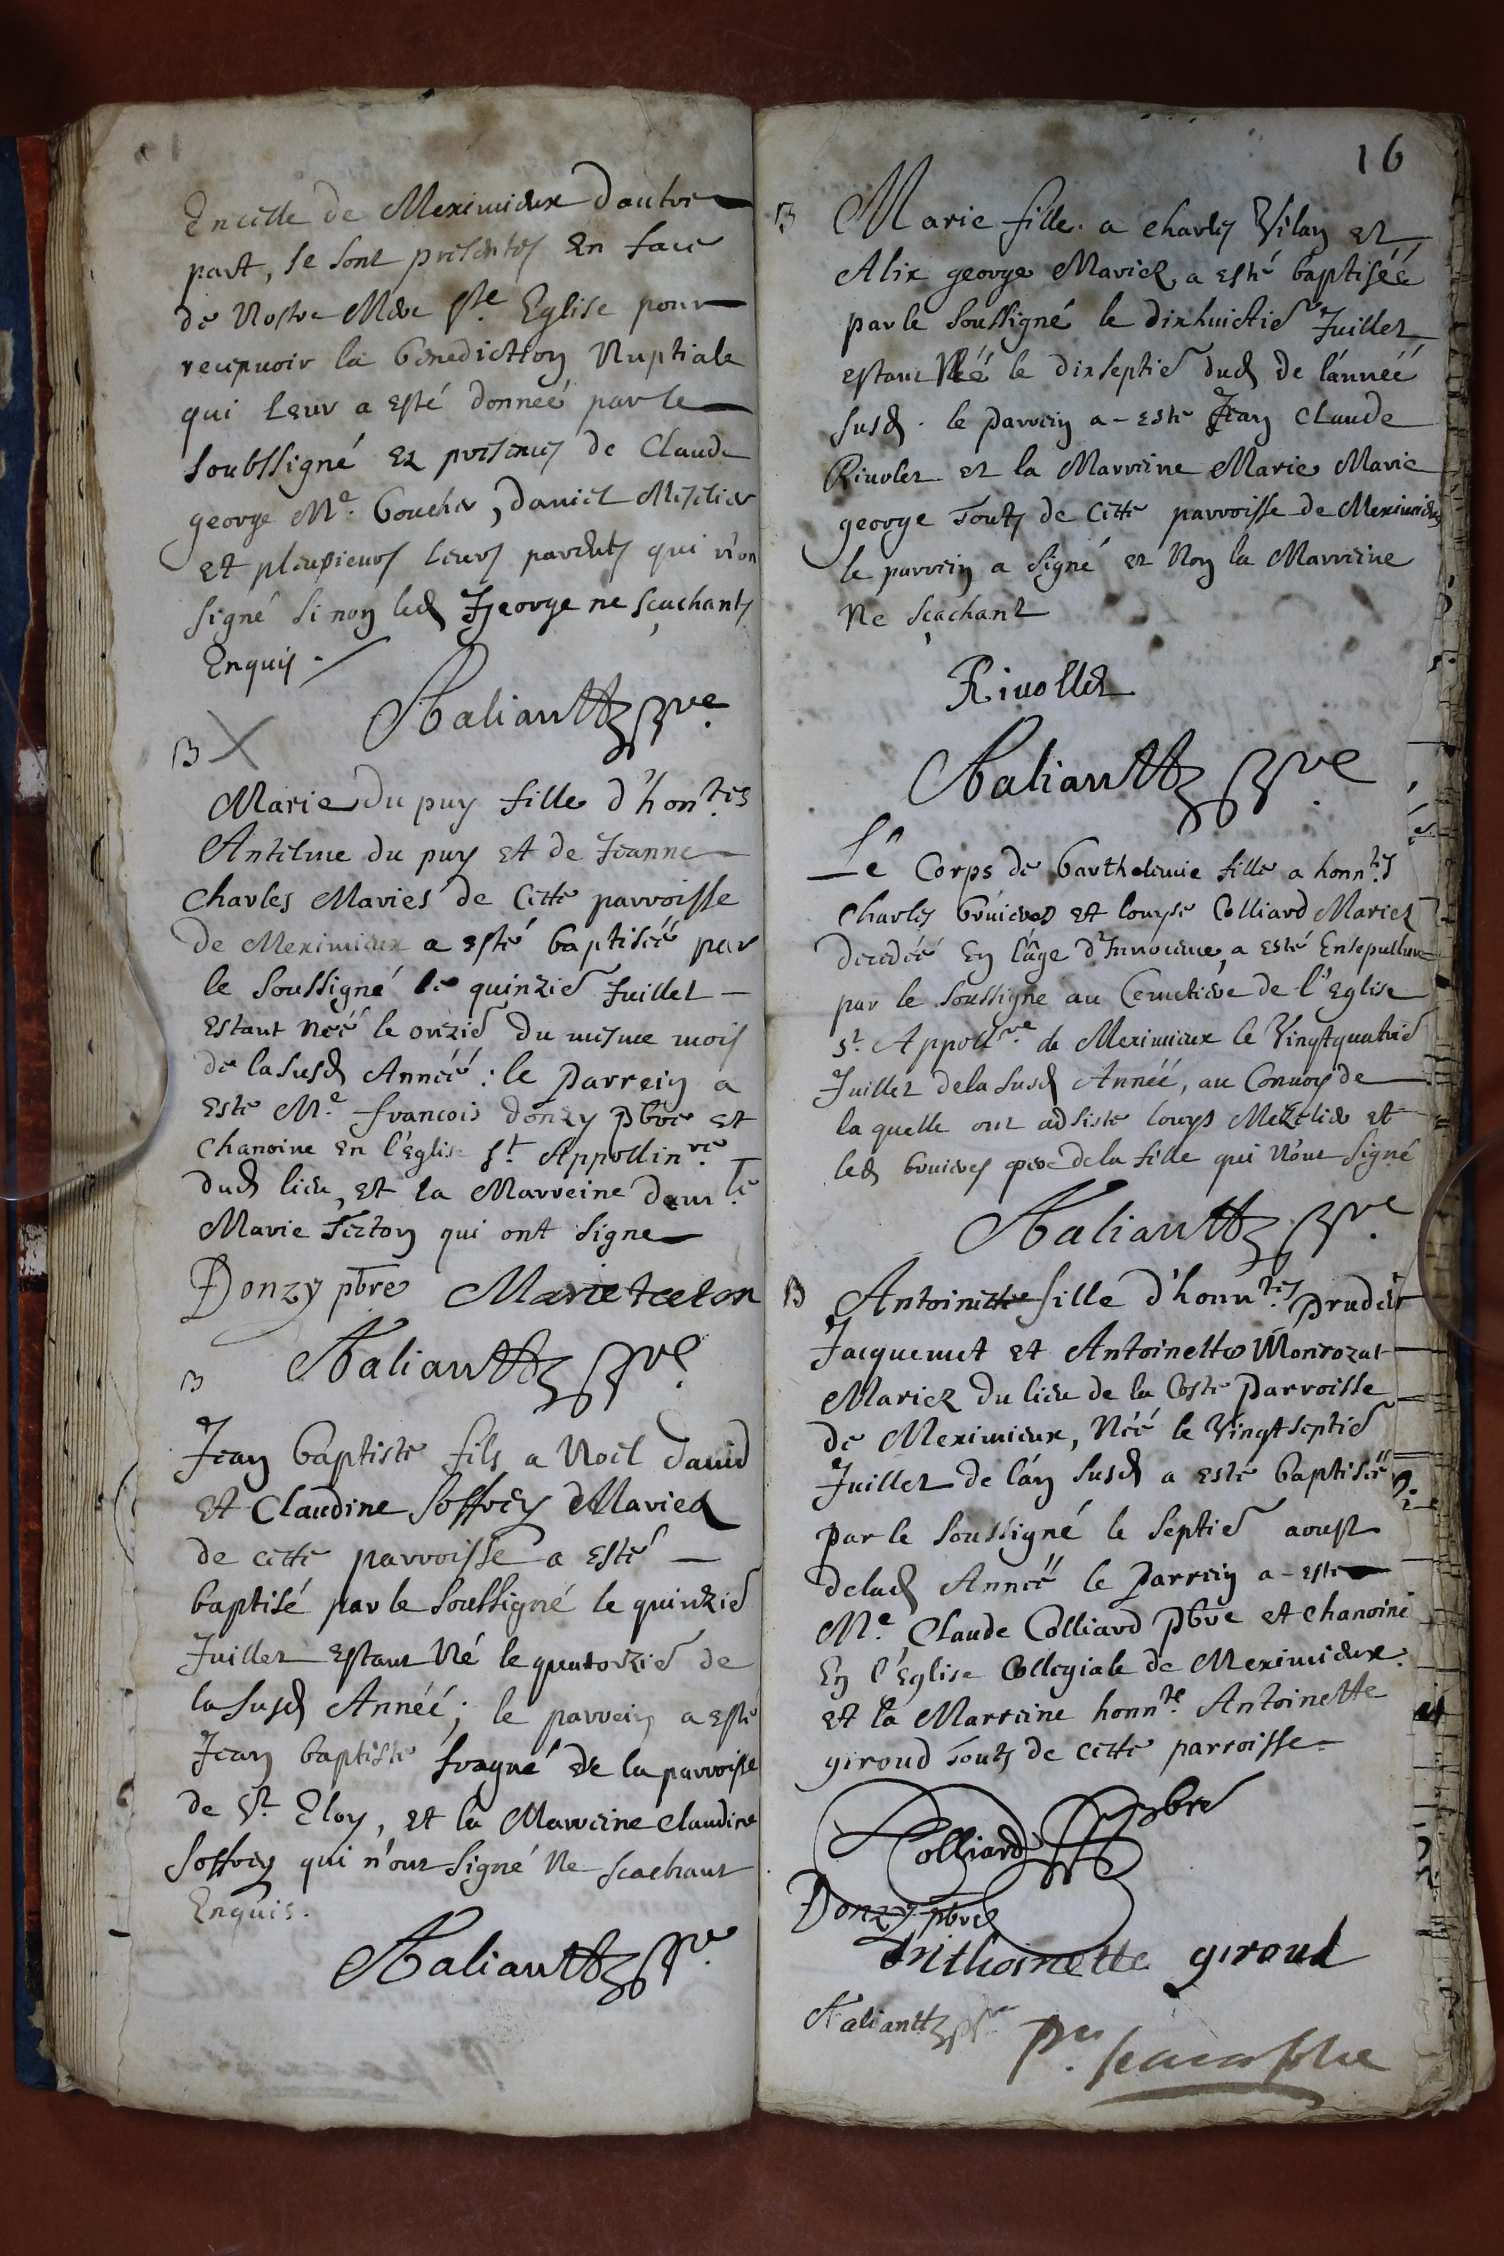 En celle de Meximieux d'autre
part, se sont presentés En face
de Nostre Mere Ste. Eglise pour
recepvoir la benediction Nuptiale
qui leur a esté donnée par le
soubssigné Ez presences de Claude
george Me. boucher, Daniel Mestelier
et plusieurs leurs parents qui n'on
signé si non led. George ne sçachants
Enquis.
B
Marie du puy fille d'hontes
Antelme du puy et de Jeanne
Charles Mariés de Cette parroisse
de Meximieux a esté baptisée par
le soussigné le quinzie Juillet
Estant Née le onzie du mesme mois
de la susd. Année : le Parrein a
este Me. francois Donzy Pbre et
Chanoine en l'Eglise st. Appollinre.
dud. lieu, et la Marreine
Marie qui ont signe
Donzy pbre
B
Jean baptiste fils a Noel David
et Claudine Soffrey Mariez
de cette parroisse a esté
baptisé par le soussigné le quinzie
Juillet Estant Né le quatorzie de
la susd. Année ; le parrein a esté
Jean baptiste fragné de la parroisse
de St. Eloy, et la Marreine Claudine
Soffrey qui n'ont signé Ne scachant
Enquis.
16
B
Marie fille a Charles Vilan et
Alix george Mariez a esté baptisée
par le soussigné le dixhuictie Juillet
estant Née le dixseptie dud. de l'année
susd. le parrein a esté Jean Claude
Rivolet et la Marreine Marie Marie
george Touts de Cette parroisse de Meximieux
le parrein a signé et Non la Marreine
Ne sçachant
Rivollet
Le Corps de barthelemie fille a honntes
Charles bruieres et louyse Colliard Mariez
decedée En l'âge d'Innocence, a esté Ensepulture
par le soussigne au Cemetiere de l'Eglise
st. Appollre. de Meximieux le Vingtquatrie
Juillet de la susd. Année, au Convoy de
la quelle ont adsiste louys Mezelier et
led. bruieres pere de la fille qui N'ont signé
B
Antoinette fille d'honntes prudent
Jacquemet et Antoinette Monrozat
Mariez du lieu de la Coste Parroisse
de Meximieux, Née le Vingtseptie
Juillet de l'an susd. a esté baptisée
par le soussigné le septie aoust
de lad. Année le Parrein a este
Me. Claude Colliard Pbre et Chanoine
En l'Eglise Collegiale de Meximieux.
et la Marreine honnte. Antoinette
giroud Touts de cette parroisse
Colliard pbre
Donzy pbre
Anthoinette giroud